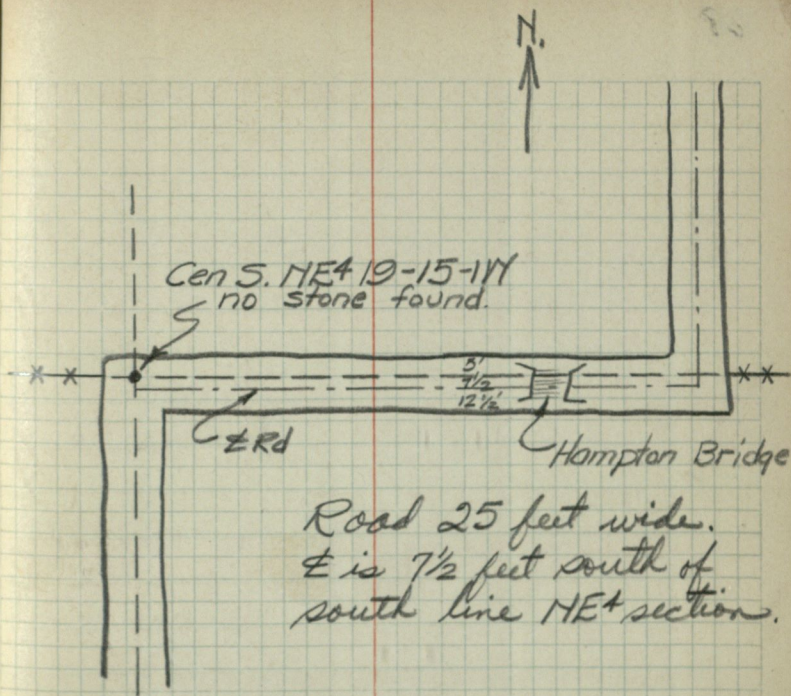 N.
Cen S. NE4 19-15-1W
no stone found.
5'
7 1/2
12 1/2'
℄ Rd
Hampton Bridge
Road 25 feet wide.
℄ is 7 1/2 feet south of
south line NE4 section.